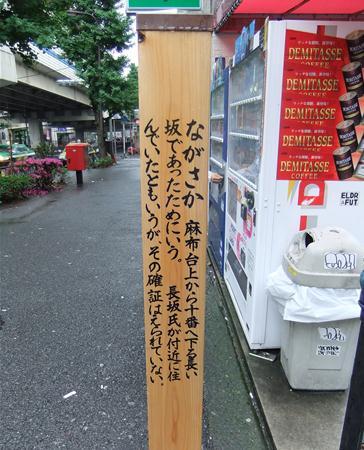 ながさか　麻布台上から十番へ下る長い
坂であったためにいう。　長坂氏が付近に住
んでいたともいうが、その確証はえられていない。
DEMITASSE
COFFEE
DEMITASSE
COFFEE
DEMITASSE
COFFEE
DEMITASSE
COFFEE
DEMITASSE
COFFEE